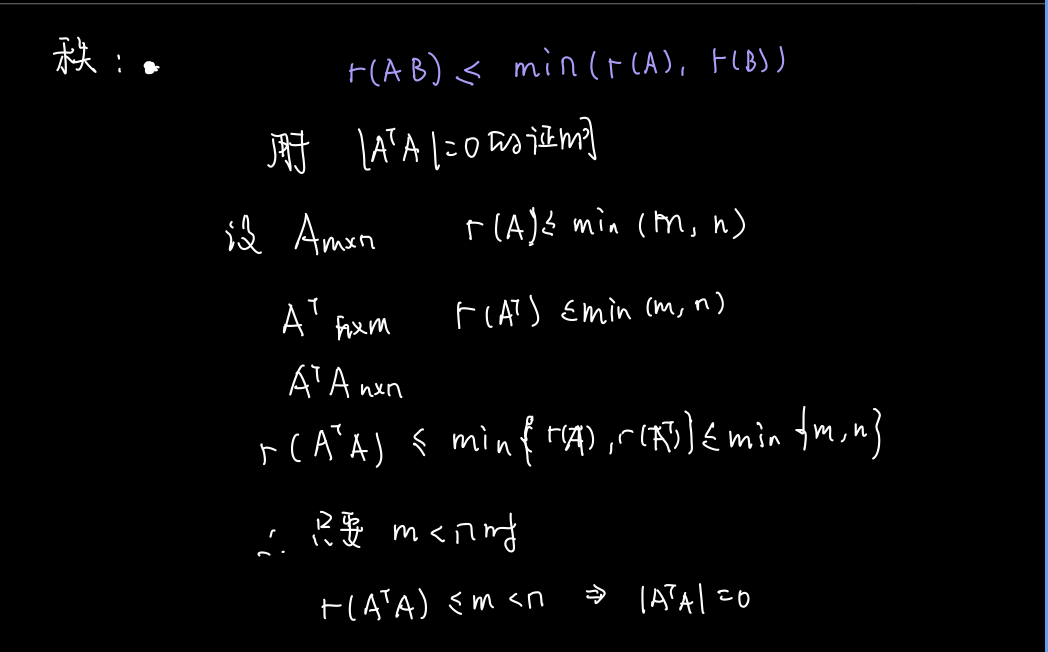 秩：
r(AB) ≤ min(r(A), r(B))
用于 |AᵀA|=0的证明
设 Aₘₓₙ r(A)≤ min (m, n)
Aᵀ ₙₓₘ r(Aᵀ) ≤min (m, n)
AᵀA ₙₓₙ
r(AᵀA) ≤ min{r(A), r(Aᵀ)}≤ min {m, n}
∴ 只要 m<n时
r(AᵀA) ≤m <n ⇒ |AᵀA|=0